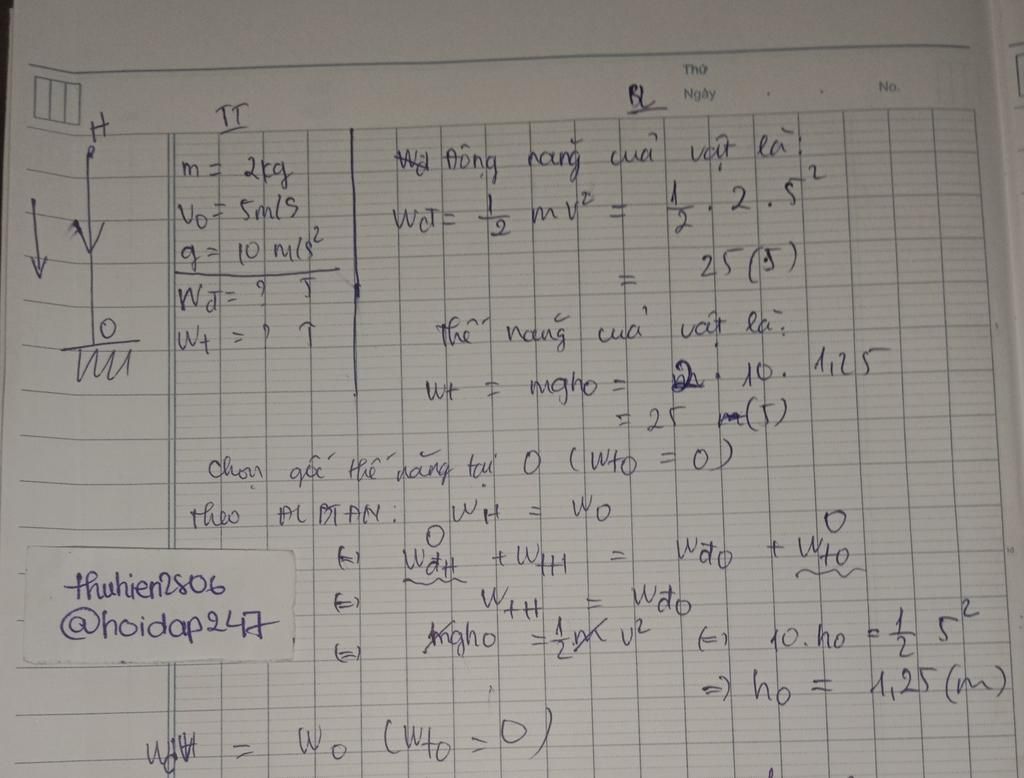 Thứ
Ngày
No.
TT
BL
H
m = 2kg
v₀ = 5m/s
g = 10 m/s²
Wđ = ? J
Wt = ? J
O
Động năng của vật là:
Wđ = 1/2 mv² = 1/2 . 2 . 5²
= 25 (J)
Thế năng của vật là:
Wt = mgho = 2 . 10 . 1,25
= 25 (J)
Chọn gốc thế năng tại O (Wto = 0)
Theo ĐLBTAN: WH = WO
0 0
(=) WđH + WtH = Wđo + Wto
(=) WtH = Wđo
(=) mgho = 1/2 m v² (=) 10.ho = 1/2 5²
=) ho = 1,25 (m)
= Wo (Wto = 0)
thuhien2806
@hoidap247